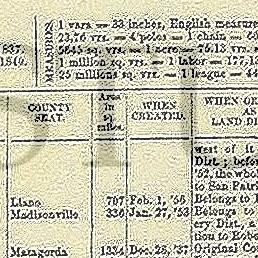 MEASURES
1 vara = 33 inches, English measure
23,76 vrs. = 4 poles = 1 chain = 66
5645 sq. vrs. = 1 acre = 75,13 vrs.
1 million sq. vrs. = 1 labor = 177,1
25 millions sq. vrs. = 1 league = 44
837.
COUNTY SEAT.
Area in sq miles
WHEN CREATED.
WHEN
LAND DI
west of it
Dist.; before
'52, the whole
to San Patri
Llano 707 Feb. 1, '56 Belongs to
Madisonville 336 Jan. 27, '53 Belongs to
ery Dist., a
tion to Robe
Matagorda 1334 Dec. 28, '37 Original Co